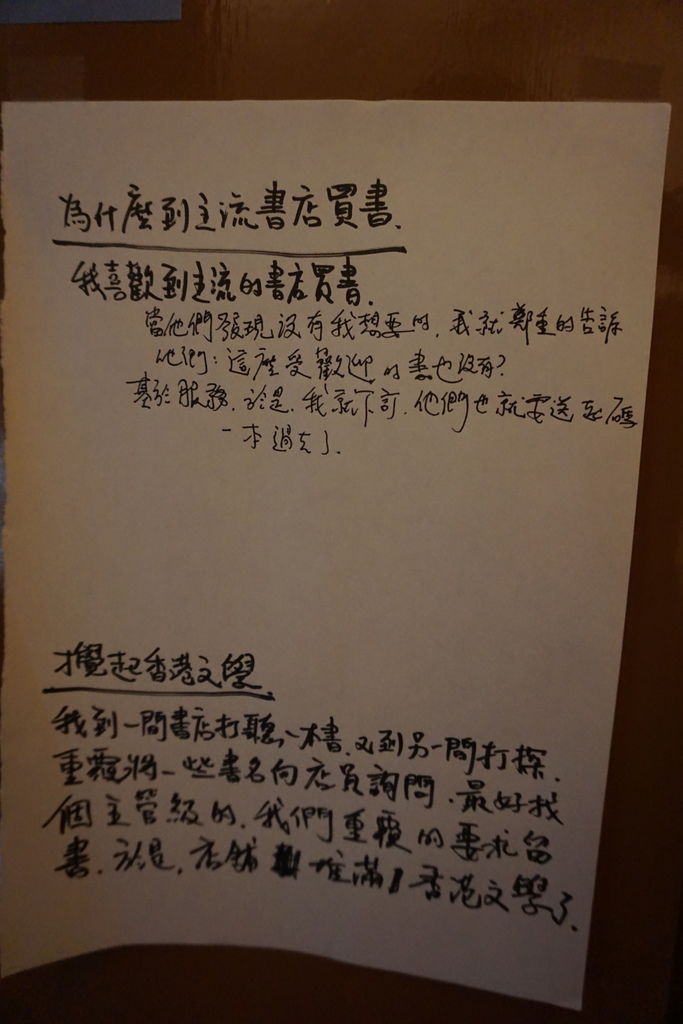 為什麼到主流書店買書.
我喜歡到主流的書店買書.
當他們發現沒有我想要的,我就鄭重的告訴
他們:這麼受歡迎的書也沒有?
基於服務.於是.我就下訂.他們也就要送起碼
一本過去了.
攪起香港文學
我到一間書店打聽一本書.又到另一間打探.
重覆將一些書名向店員詢問.最好找
個主管級的.我們重覆的要求留
書.於是.店舖堆滿香港文學了.